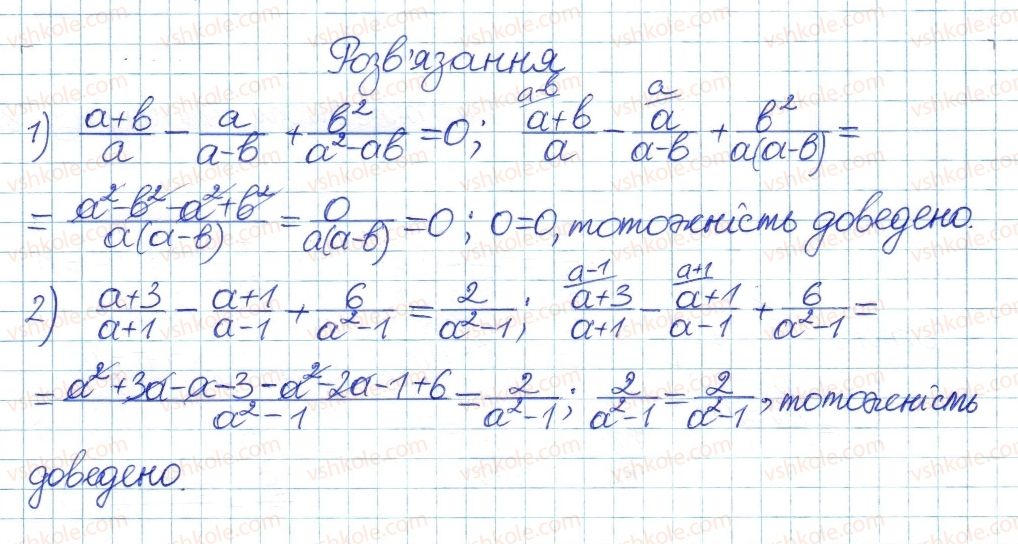 Розв'язання
1) \frac{a+b}{a} - \frac{a}{a-b} + \frac{b^2}{a^2-ab} = 0; \frac{\overset{a-b}{a+b}}{a} - \frac{\overset{a}{a}}{a-b} + \frac{b^2}{a(a-b)} =
= \frac{a^2-b^2-a^2+b^2}{a(a-b)} = \frac{0}{a(a-b)} = 0; 0=0, тотожність доведено.
2) \frac{a+3}{a+1} - \frac{a+1}{a-1} + \frac{6}{a^2-1} = \frac{2}{a^2-1}; \frac{\overset{a-1}{a+3}}{a+1} - \frac{\overset{a+1}{a+1}}{a-1} + \frac{6}{a^2-1} =
= \frac{a^2+3a-a-3-a^2-2a-1+6}{a^2-1} = \frac{2}{a^2-1}; \frac{2}{a^2-1} = \frac{2}{a^2-1}, тотожність
доведено.